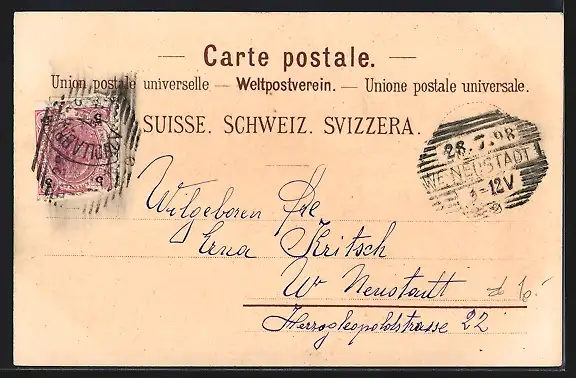 Carte postale.
Union postale universelle — Weltpostverein. — Unione postale universale.
SUISSE. SCHWEIZ. SVIZZERA.
28.7.98
WR.NEUSTADT
-12V
Wolgeboren Fre
Erna Kritsch
W Neustadt
Herzogleopoldstrasse 22